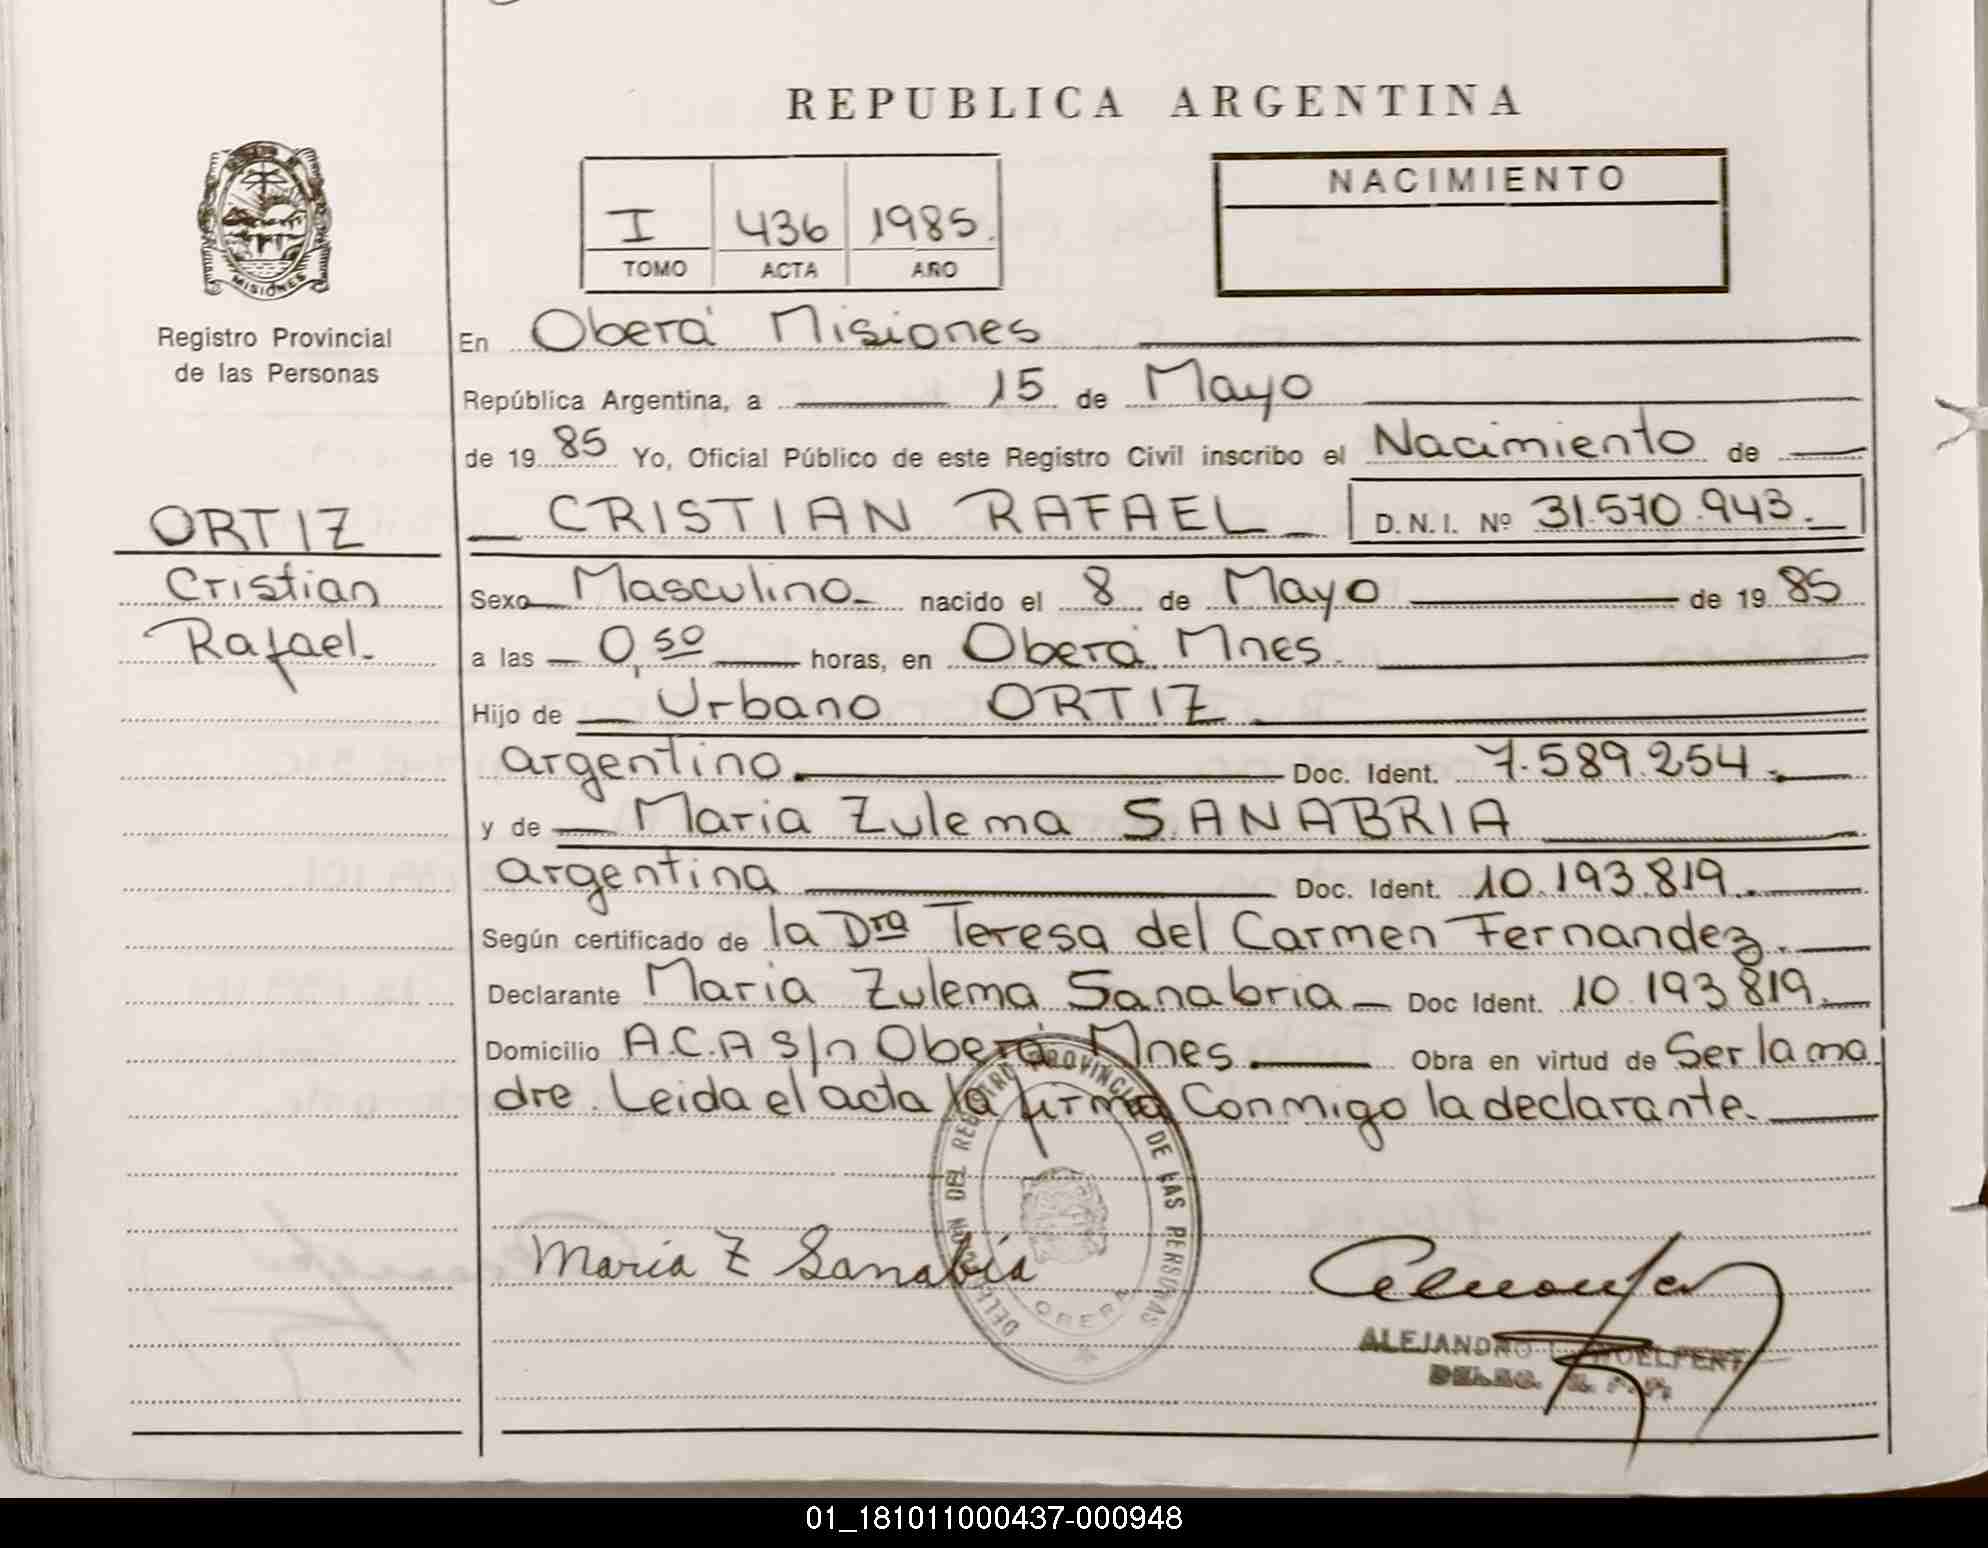 REPUBLICA ARGENTINA
NACIMIENTO
I 436 1985.
TOMO ACTA AÑO
MISIONES
Registro Provincial
de las Personas
ORTIZ
Cristian
Rafael.
En Oberá Misiones
República Argentina, a 15 de Mayo
de 19 85 Yo, Oficial Público de este Registro Civil inscribo el Nacimiento de
CRISTIAN RAFAEL D.N.I. Nº 31.570.943.
Sexo Masculino nacido el 8 de Mayo de 19 85
a las 0,50 horas, en Oberá Mnes.
Hijo de Urbano ORTIZ
argentino. Doc. Ident. 7.589.254.
y de Maria Zulema SANABRIA
argentina Doc. Ident. 10.193.819.
Según certificado de la Dra Teresa del Carmen Fernandez.
Declarante Maria Zulema Sanabria Doc Ident. 10.193.819.
Domicilio A.C.A S/n Oberá Mnes. Obra en virtud de Ser la ma
dre. Leida el acta la firma Conmigo la declarante.
DELEGACION DEL REGISTRO PROVINCIAL DE LAS PERSONAS
OBERA
Maria Z Sanabia
ALEJANDRO
01_181011000437-000948